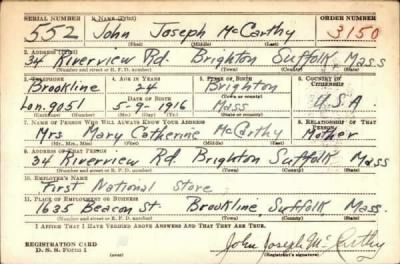 SERIAL NUMBER 1. NAME (Print) ORDER NUMBER
552 John Joseph McCarthy 3150
(First) (Middle) (Last)
2. ADDRESS (Print)
34 Riverview Rd. Brighton Suffolk Mass
(Number and street or R. F. D. number) (Town) (County) (State)
3. TELEPHONE 4. AGE IN YEARS 5. PLACE OF BIRTH 6. COUNTRY OF CITIZENSHIP
Brookline 24 Brighton
DATE OF BIRTH (Town or county)
Lon. 9051 5-9-1916 Mass U.S.A
7. NAME OF PERSON WHO WILL ALWAYS KNOW YOUR ADDRESS 8. RELATIONSHIP OF THAT PERSON
Mrs Mary Catherine McCarthy Mother
(Mr., Mrs., Miss) (First) (Middle) (Last)
9. ADDRESS OF THAT PERSON
34 Riverview Rd. Brighton Suffolk Mass
(Number and street or R. F. D. number) (Town) (County) (State)
10. EMPLOYER'S NAME
First National Store
11. PLACE OF EMPLOYMENT OR BUSINESS
1635 Beacon St. Brookline, Suffolk Mass.
(Number and street or R. F. D. number) (Town) (County) (State)
I AFFIRM THAT I HAVE VERIFIED ABOVE ANSWERS AND THAT THEY ARE TRUE.
REGISTRATION CARD John Joseph McCarthy
D. S. S. Form 1 (Registrant's signature)